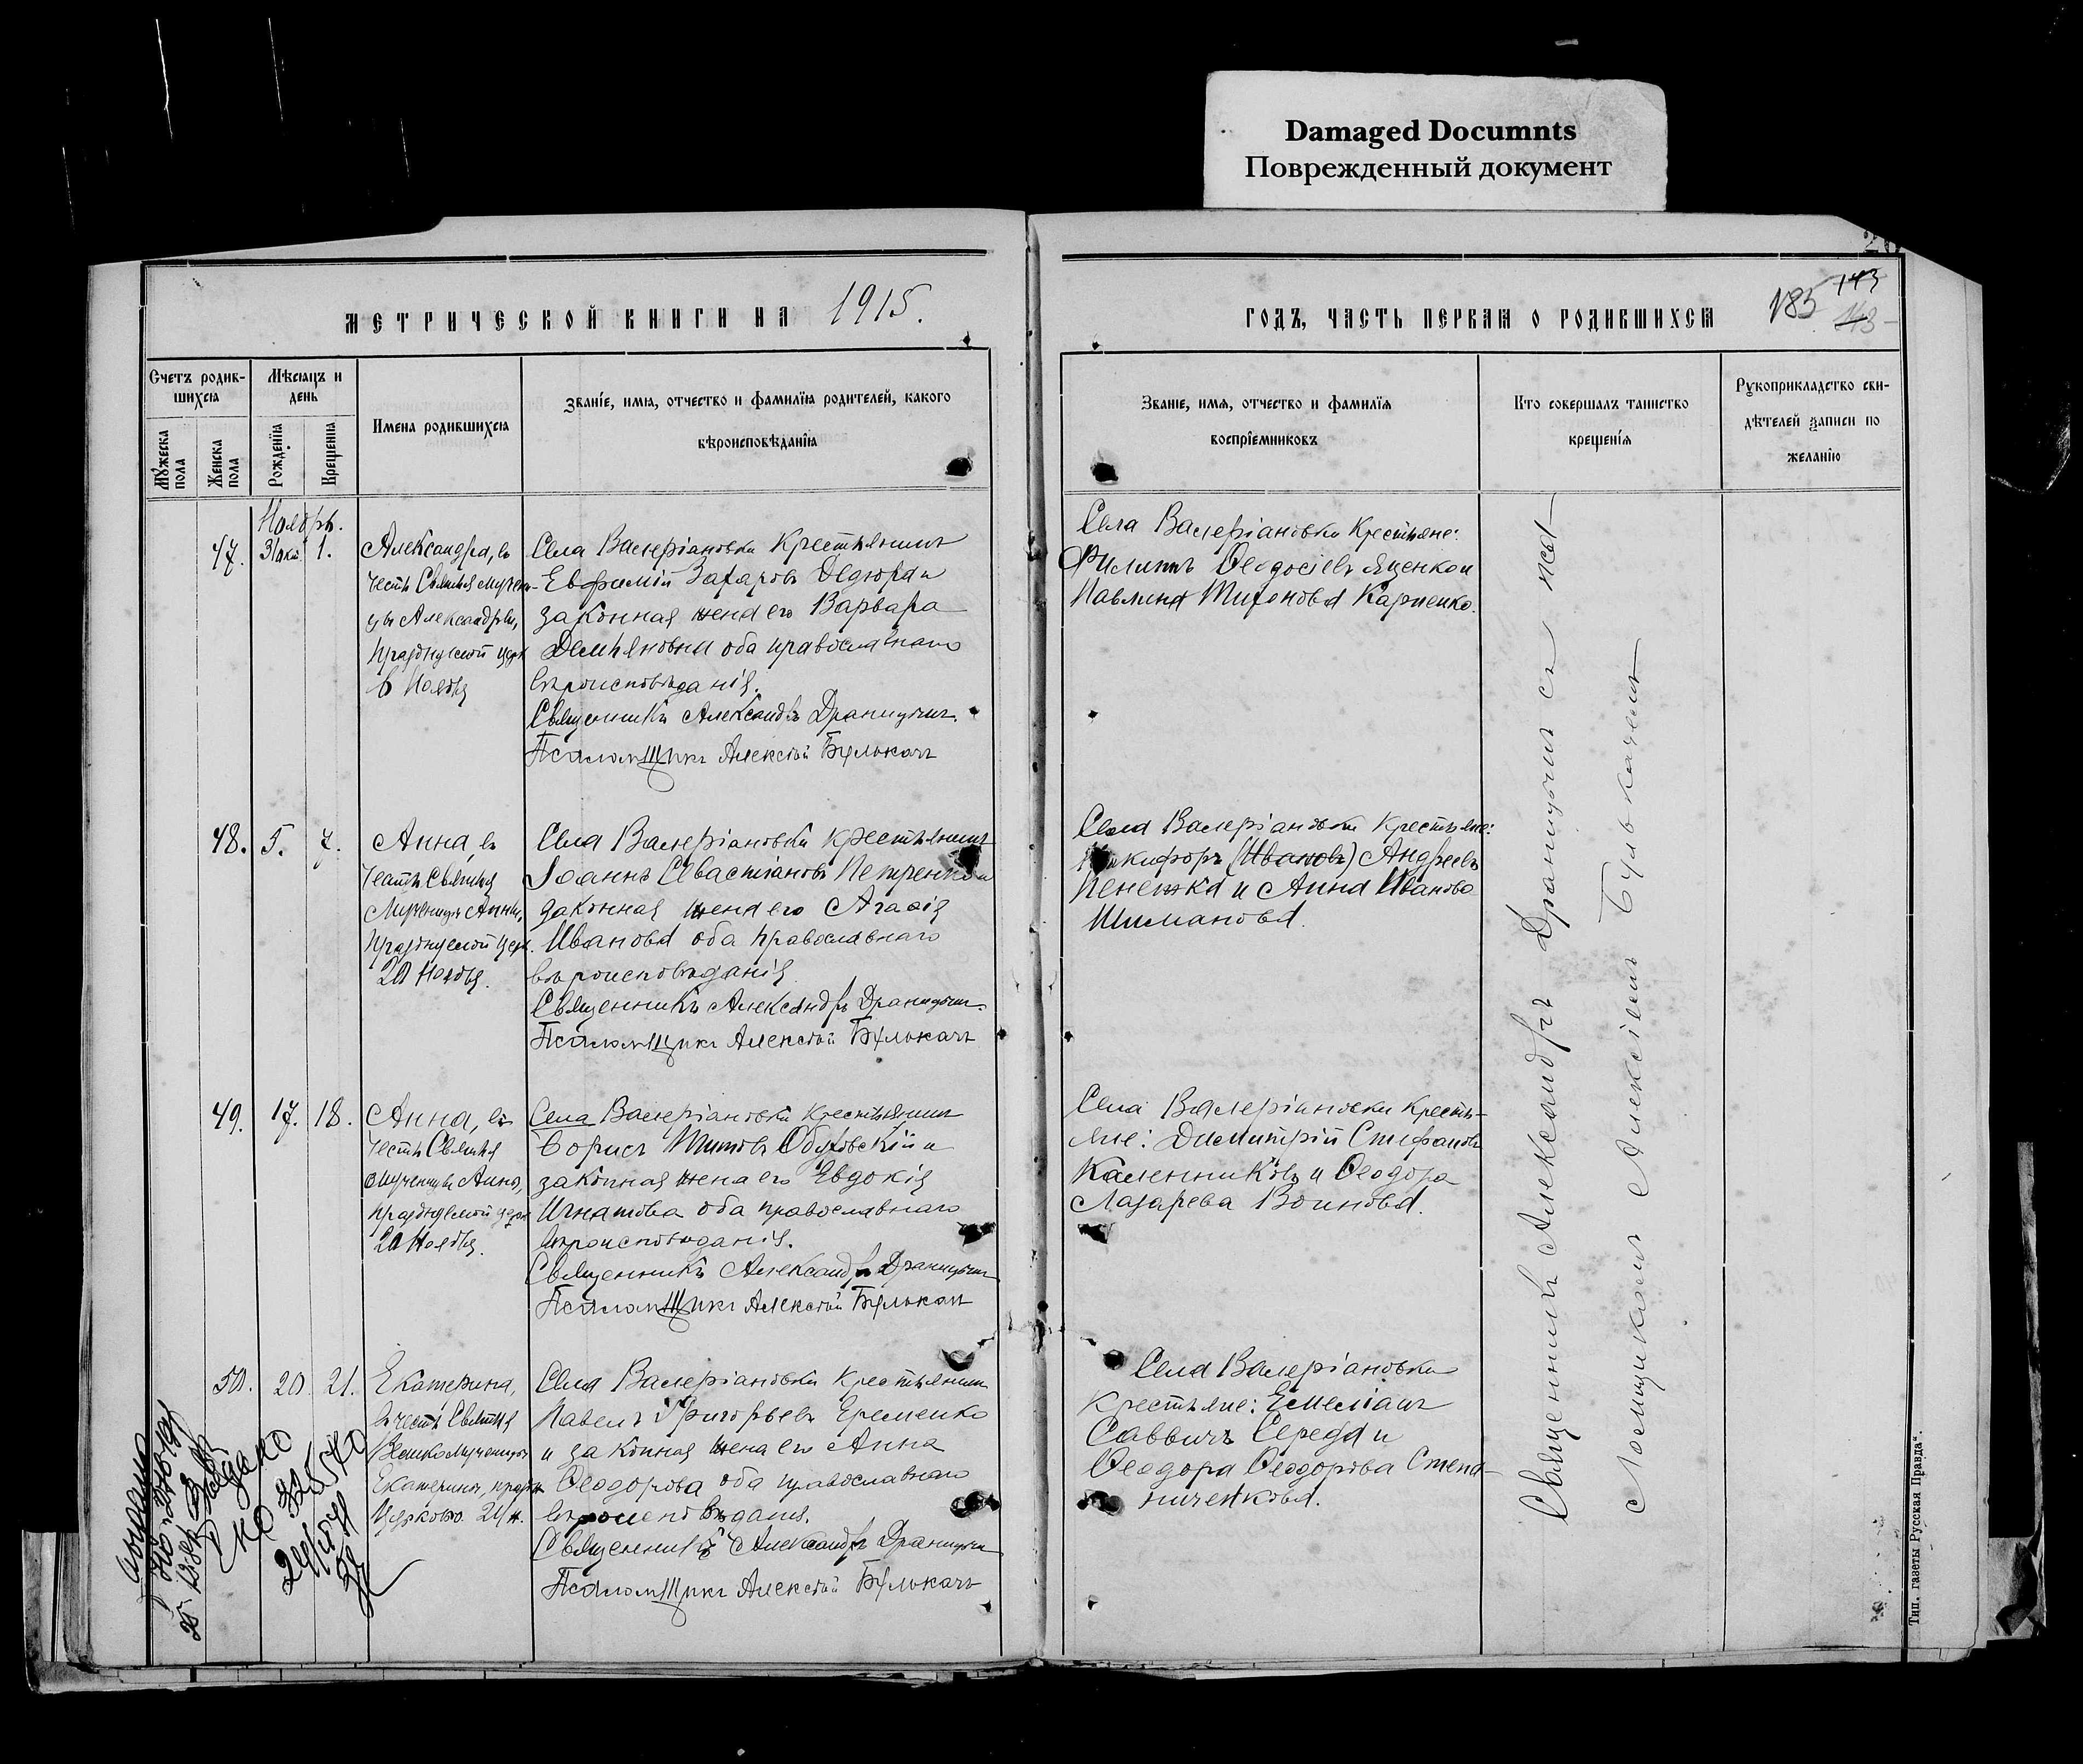 Damaged Documnts
Поврежденный документ
МЕТРИЧЕСКОЙ КНИГИ НА 1915.
Счетъ родив-
шихся
Мѣсяцъ и
день
Мужеска пола
Женска пола
Рожденія
Крещенія
Имена родившихся
Званіе, имя, отчество и фамилія родителей, какого
вѣроисповѣданія
Ноябрь.
47.
31 окт.
1.
Александра, въ
честь Святыя мучени-
цы Александры,
празднуемой церк
6 Ноября
Села Валеріановки крестьянинъ
Евфимій Захаровъ Дедюра и
законная жена его Варвара
Демьяновна оба православнаго
вѣроисповѣданія.
Священникъ Александръ Драницынъ.
Псаломщикъ Алексѣй Булькачъ
48.
5.
7.
Анна, въ
честь Святыя
Мученицы Анны,
празднуемой церк.
20 Ноября.
Села Валеріановки крестьянинъ
Іоаннъ Севастіановъ Петренко и
законная жена его Агафія
Иванова оба православнаго
вѣроисповѣданія
Священникъ Александръ Драницынъ.
Псаломщикъ Алексѣй Булькачъ
49.
17.
18.
Анна, въ
честь Святыя
мученицы Анны,
празднуемой церк
20 Ноября.
Села Валеріановки крестьянинъ
Борисъ Титовъ Обуховскій и
законная жена его Евдокія
Игнатова оба православнаго
вѣроисповѣданія.
Священникъ Александръ Драницынъ
Псаломщикъ Алексѣй Булькачъ
50.
20.
21.
Екатерина,
въ честь Святыя
Великомученицы
Екатерины, праздн
Церковью 24 н.
Села Валеріановки крестьянинъ
Павелъ Григорьевъ Еременко
и законная жена его Анна
Ѳеодорова оба православнаго
вѣроисповѣданія.
Священникъ Александръ Драницынъ
Псаломщикъ Алексѣй Булькачъ
ГОДЪ, ЧАСТЬ ПЕРВАЯ О РОДИВШИХСЯ
185
143
143
Званіе, имя, отчество и фамилія
воспріемниковъ
Кто совершалъ таинство
крещенія
Рукоприкладство сви-
дѣтелей записи по
желанію
Села Валеріановки крестьяне:
Филиппъ Ѳеодосіевъ Яценко и
Павлина Тихонова Карпенко.
Села Валеріановки крестьяне:
Никифоръ (Ивановъ) Андреевъ
Пенежка и Анна Иванова
Шиманова.
Села Валеріановки кресть-
яне: Димитрій Стефановъ
Каленниковъ и Ѳеодора
Лазарева Воинова.
Села Валеріановки
крестьяне: Емеліанъ
Саввичъ Середа и
Ѳеодора Ѳеодорова Степа-
ниченкова.
Священникъ Александръ Драницынъ съ
псаломщикомъ Алексіемъ Булькачемъ
Тип. газеты „Русская Правда“.